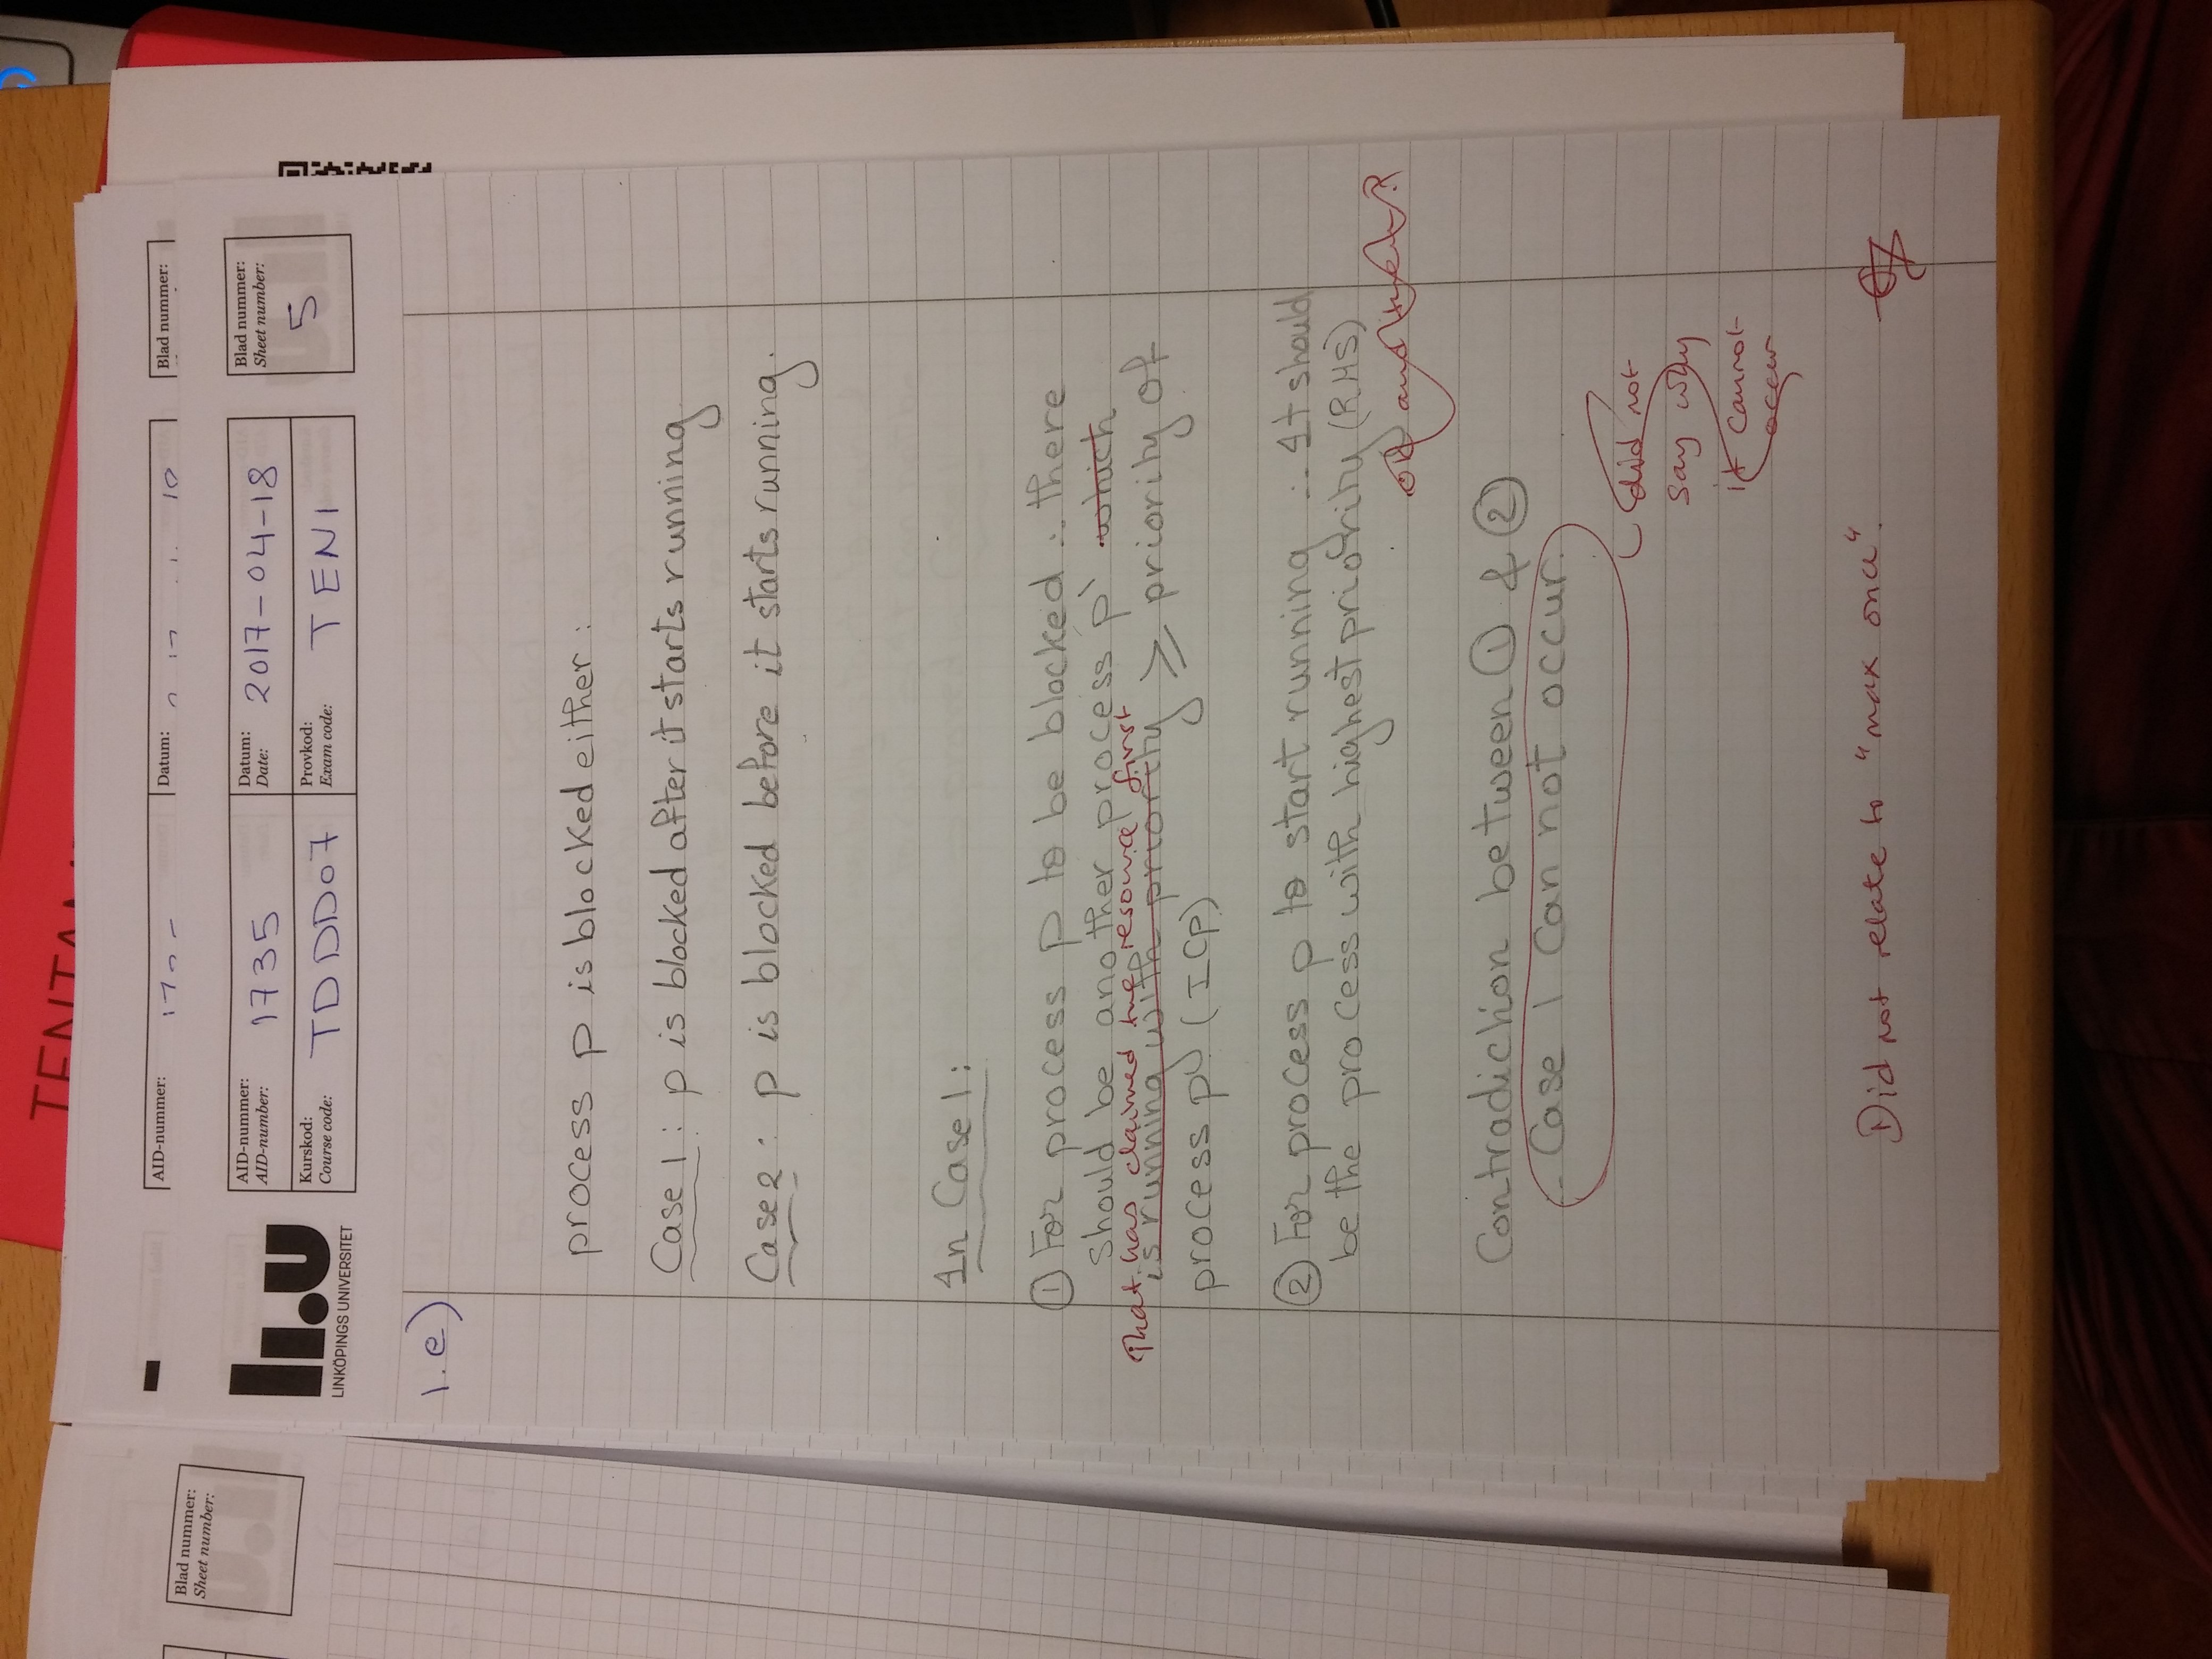 TENTA
AID-nummer:
Datum:
Blad nummer:
LINKÖPINGS UNIVERSITET
AID-nummer:
AID-number:
1735
Datum:
Date:
2017-04-18
Blad nummer:
Sheet number:
5
Kurskod:
Course code:
TDDD07
Provkod:
Exam code:
TEN1
1.e)
process p is blocked either:
Case 1: p is blocked after it starts running
Case 2: p is blocked before it starts running.
In Case 1:
① For process p to be blocked ∴ there
should be another process p' which
That has claimed the resource first
is running with priority ≥ priority of
process p (ICP)
② For process p to start running ∴ It should
be the process with highest priority (RMS)
or and
Contradiction between ① & ②
∴ Case 1 Can not occur.
did not
say why
it cannot
occur
Did not relate to "max once".
Blad nummer:
Sheet number: